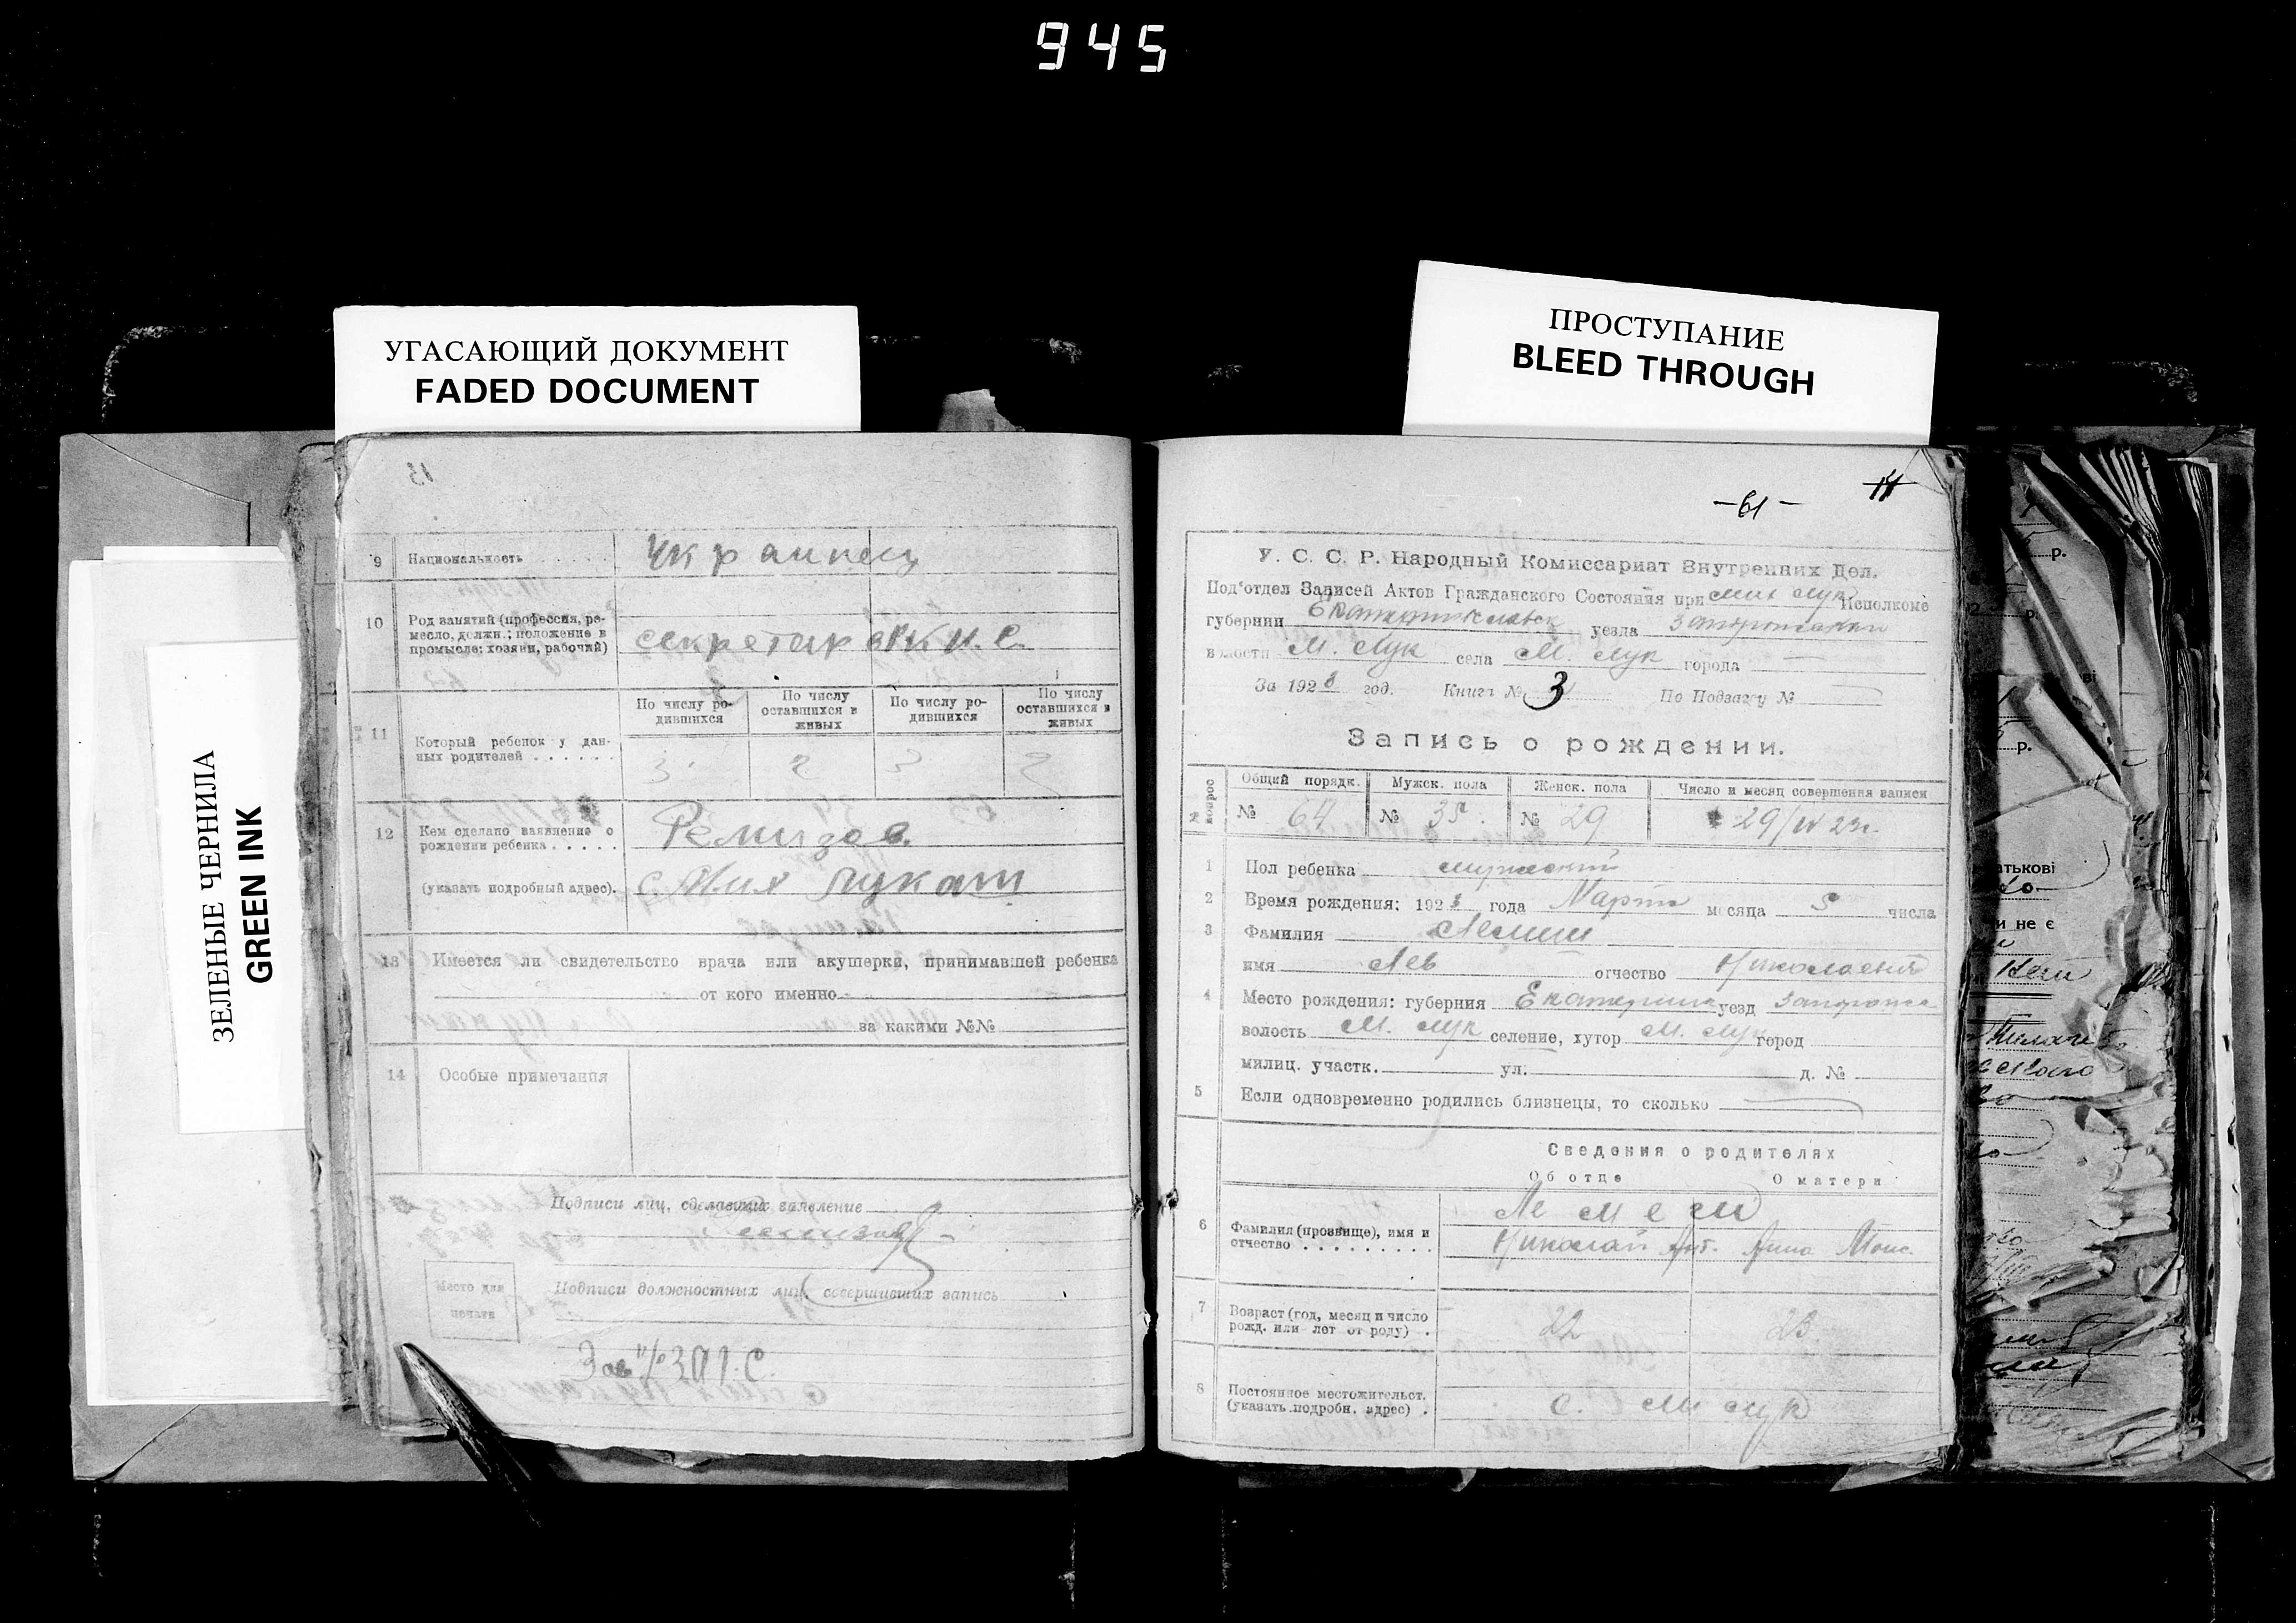 945
УГАСАЮЩИЙ ДОКУМЕНТ
FADED DOCUMENT
ПРОСТУПАНИЕ
BLEED THROUGH
ЗЕЛЕНЫЕ ЧЕРНИЛА
GREEN INK
13
9 Национальность Украинец
10 Род занятий (профессия, ре-
месло, должн.; положение в
промысле: хозяин, рабочий)
секретар
11 Который ребенок у дан-
ных родителей
По числу ро-
дившихся
По числу
оставшихся в
живых
По числу ро-
дившихся
По числу
оставшихся в
живых
3 2 3 2
12 Кем сделано заявление о
рождении ребенка
Ремизов
(указать подробный адрес). с.
13 Имеется ли свидетельство врача или акушерки, принимавшей ребенка
от кого именно
за какими №№
14 Особые примечания
Подписи лиц, сделавших заявление
Место для
печати
Подписи должностных лиц, совершивших запись
-61-
14
У. С. С. Р. Народный Комиссариат Внутренних Дел.
Под'отдел Записей Актов Гражданского Состояния при Мих Лук Исполкоме
губернии уезда
волости М. Лук села М. Лук города —
За 1923 год. Книга № 3 По Подзагсу №
Запись о рождении.
№ вопрос
Общий порядк. Мужск. пола Женск. пола Число и месяц совершения записи
№ 64 № 35 № 29 29/IV 23г.
1 Пол ребенка мужской
2 Время рождения: 1923 года Марта месяца 5 числа
3 Фамилия Лемеш
имя Лев отчество Николаевич
4 Место рождения: губерния Екатерин уезд
волость М. Лук селение, хутор М. Лук город
милиц. участк. ул. д. №
5 Если одновременно родились близнецы, то сколько
Сведения о родителях
Об отце О матери
6 Фамилия (прозвище), имя и
отчество
Лемеш
Николай Ант. Анна Моис.
7 Возраст (год, месяц и число
рожд. или лет от роду)
22 23
8 Постоянное местожительст.
(указать подробн. адрес)
с. М Лук